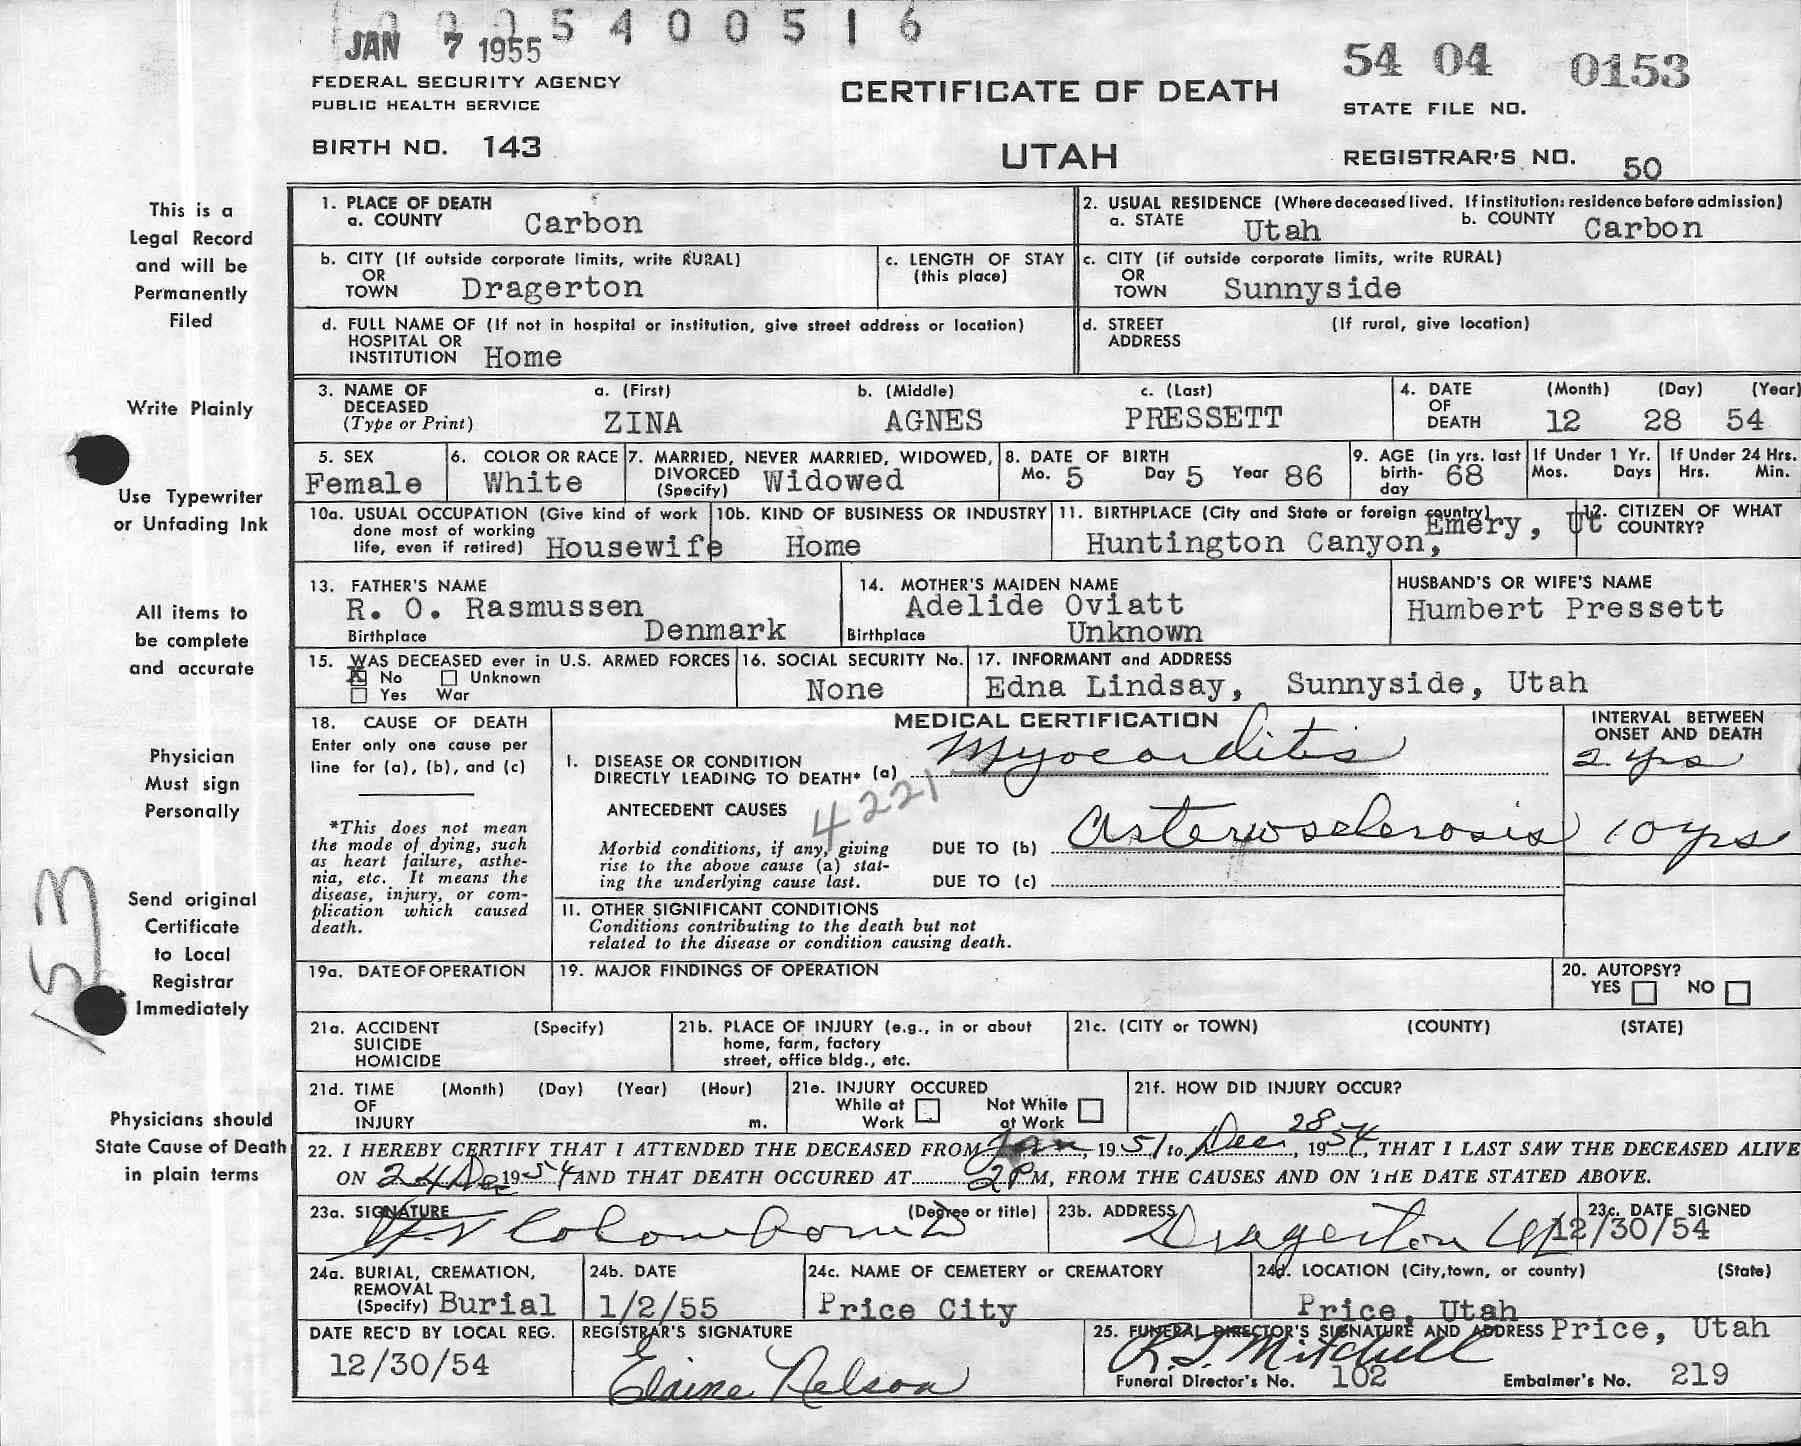 0 0 0 5 4 0 0 5 1 6
JAN 7 1955
54 04 0153
FEDERAL SECURITY AGENCY
PUBLIC HEALTH SERVICE
CERTIFICATE OF DEATH
STATE FILE NO.
BIRTH NO. 143
UTAH
REGISTRAR'S NO. 50
This is a
Legal Record
and will be
Permanently
Filed
Write Plainly
Use Typewriter
or Unfading Ink
All items to
be complete
and accurate
Physician
Must sign
Personally
Send original
Certificate
to Local
Registrar
Immediately
153
Physicians should
State Cause of Death
in plain terms
1. PLACE OF DEATH
a. COUNTY Carbon
2. USUAL RESIDENCE (Where deceased lived. If institution: residence before admission)
a. STATE Utah b. COUNTY Carbon
b. CITY (If outside corporate limits, write RURAL)
OR
TOWN Dragerton
c. LENGTH OF STAY
(this place)
c. CITY (if outside corporate limits, write RURAL)
OR
TOWN Sunnyside
d. FULL NAME OF (If not in hospital or institution, give street address or location)
HOSPITAL OR
INSTITUTION Home
d. STREET (If rural, give location)
ADDRESS
3. NAME OF a. (First) b. (Middle) c. (Last)
DECEASED
(Type or Print) ZINA AGNES PRESSETT
4. DATE (Month) (Day) (Year)
OF
DEATH 12 28 54
5. SEX
Female
6. COLOR OR RACE
White
7. MARRIED, NEVER MARRIED, WIDOWED,
DIVORCED
(Specify) Widowed
8. DATE OF BIRTH
Mo. 5 Day 5 Year 86
9. AGE (in yrs. last
birth-
day 68
If Under 1 Yr.
Mos. Days
If Under 24 Hrs.
Hrs. Min.
10a. USUAL OCCUPATION (Give kind of work
done most of working
life, even if retired) Housewife
10b. KIND OF BUSINESS OR INDUSTRY
Home
11. BIRTHPLACE (City and State or foreign country)
Emery, Ut
Huntington Canyon,
12. CITIZEN OF WHAT
COUNTRY?
13. FATHER'S NAME
R. O. Rasmussen
Birthplace Denmark
14. MOTHER'S MAIDEN NAME
Adelide Oviatt
Birthplace Unknown
HUSBAND'S OR WIFE'S NAME
Humbert Pressett
15. WAS DECEASED ever in U.S. ARMED FORCES
X No Unknown
Yes War
16. SOCIAL SECURITY No.
None
17. INFORMANT and ADDRESS
Edna Lindsay, Sunnyside, Utah
18. CAUSE OF DEATH
Enter only one cause per
line for (a), (b), and (c)
*This does not mean
the mode of dying, such
as heart failure, asthe-
nia, etc. It means the
disease, injury, or com-
plication which caused
death.
MEDICAL CERTIFICATION
INTERVAL BETWEEN
ONSET AND DEATH
I. DISEASE OR CONDITION
DIRECTLY LEADING TO DEATH* (a) Myocarditis 2 yrs
4221
ANTECEDENT CAUSES
Morbid conditions, if any, giving
rise to the above cause (a) stat-
ing the underlying cause last.
DUE TO (b) Arteriosclerosis 10 yrs
DUE TO (c)
II. OTHER SIGNIFICANT CONDITIONS
Conditions contributing to the death but not
related to the disease or condition causing death.
19a. DATE OF OPERATION
19. MAJOR FINDINGS OF OPERATION
20. AUTOPSY?
YES NO
21a. ACCIDENT (Specify)
SUICIDE
HOMICIDE
21b. PLACE OF INJURY (e.g., in or about
home, farm, factory
street, office bldg., etc.
21c. (CITY or TOWN) (COUNTY) (STATE)
21d. TIME (Month) (Day) (Year) (Hour)
OF
INJURY m.
21e. INJURY OCCURED
While at Work
Not While at Work
21f. HOW DID INJURY OCCUR?
22. I HEREBY CERTIFY THAT I ATTENDED THE DECEASED FROM Jan, 1951 to Dec 28, 1954, THAT I LAST SAW THE DECEASED ALIVE
ON 24 Dec 1954 AND THAT DEATH OCCURED AT 2 P M, FROM THE CAUSES AND ON THE DATE STATED ABOVE.
23a. SIGNATURE (Degree or title)
Colombo M D
23b. ADDRESS
Dragerton Ut
23c. DATE SIGNED
12/30/54
24a. BURIAL, CREMATION,
REMOVAL
(Specify) Burial
24b. DATE
1/2/55
24c. NAME OF CEMETERY or CREMATORY
Price City
24d. LOCATION (City, town, or county) (State)
Price, Utah
DATE REC'D BY LOCAL REG.
12/30/54
REGISTRAR'S SIGNATURE
Elaine Nelson
25. FUNERAL DIRECTOR'S SIGNATURE AND ADDRESS Price, Utah
R. J. Mitchell
Funeral Director's No. 102 Embalmer's No. 219